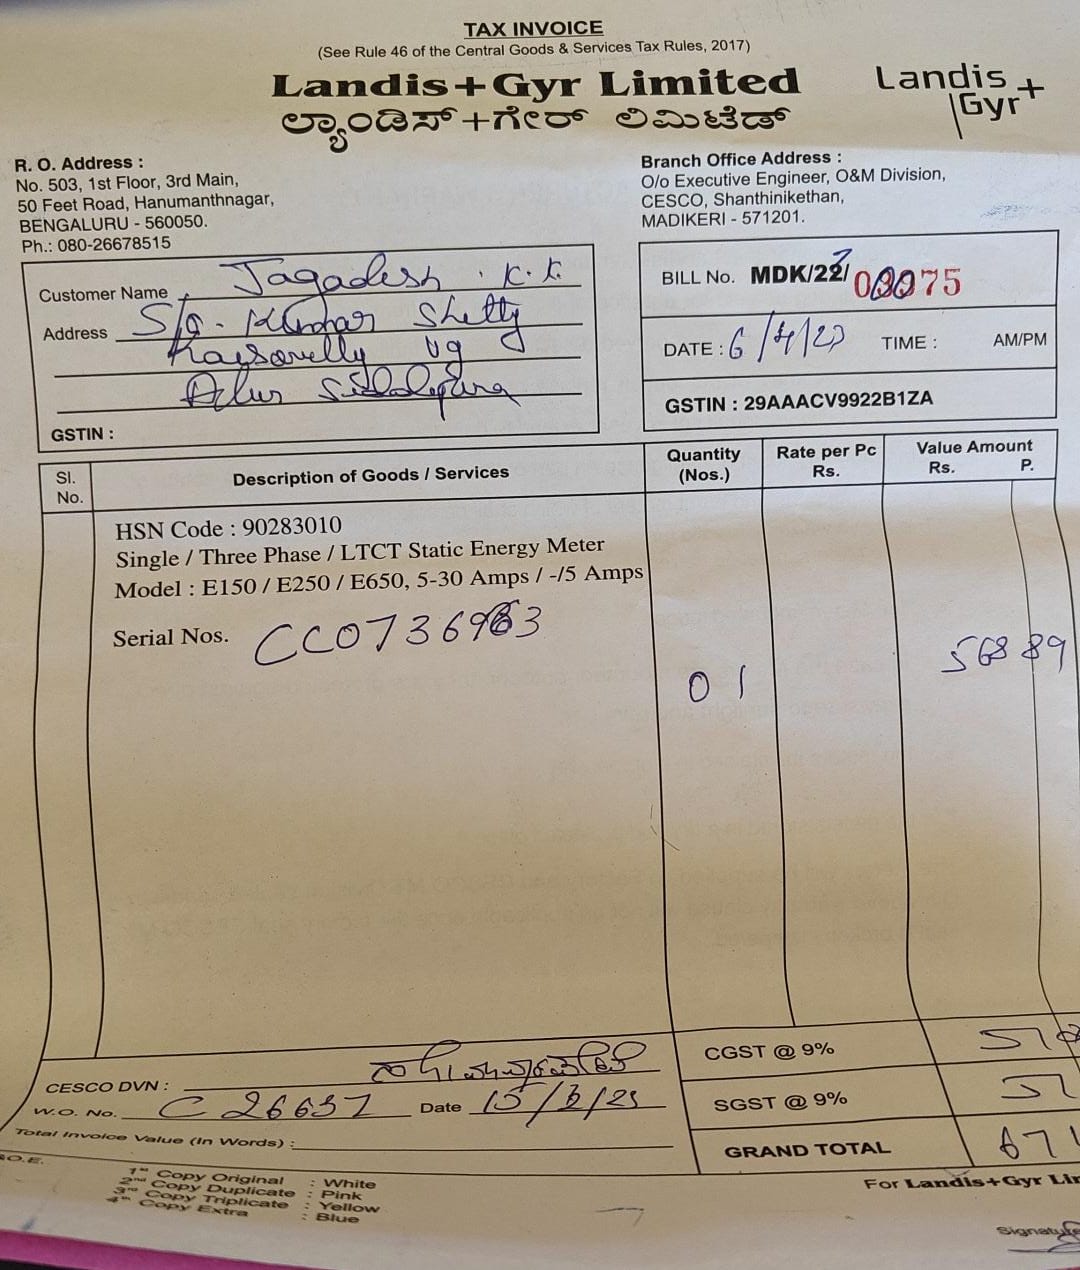 TAX INVOICE
(See Rule 46 of the Central Goods & Services Tax Rules, 2017)
Landis+Gyr Limited
ಲ್ಯಾಂಡಿಸ್+ಗೇರ್ ಲಿಮಿಟೆಡ್
Landis
Gyr+
R. O. Address :
No. 503, 1st Floor, 3rd Main,
50 Feet Road, Hanumanthnagar,
BENGALURU - 560050.
Ph.: 080-26678515
Branch Office Address :
O/o Executive Engineer, O&M Division,
CESCO, Shanthinikethan,
MADIKERI - 571201.
Customer Name Jagadesh . K. K.
Address S/o. Kumar Shetty
GSTIN :
BILL No. MDK/23/ 00075
DATE : 6/4/23 TIME : AM/PM
GSTIN : 29AAACV9922B1ZA
Sl. No. Description of Goods / Services Quantity (Nos.) Rate per Pc Rs. Value Amount Rs. P.
HSN Code : 90283010
Single / Three Phase / LTCT Static Energy Meter
Model : E150 / E250 / E650, 5-30 Amps / -/5 Amps
Serial Nos. CC0736963
01 568 89
CGST @ 9% 51
SGST @ 9% 51
GRAND TOTAL 671
CESCO DVN :
W.O. No. C 26637 Date 15/3/23
Total Invoice Value (In Words) :
O.E.
1st Copy Original : White
2nd Copy Duplicate : Pink
3rd Copy Triplicate : Yellow
4th Copy Extra : Blue
For Landis+Gyr Li
Signature